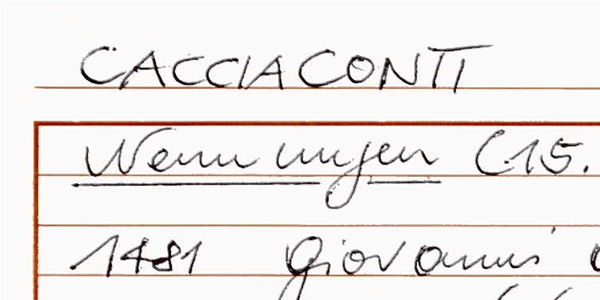 CACCIACONTI
Nennungen (15.
1481 Giovanni